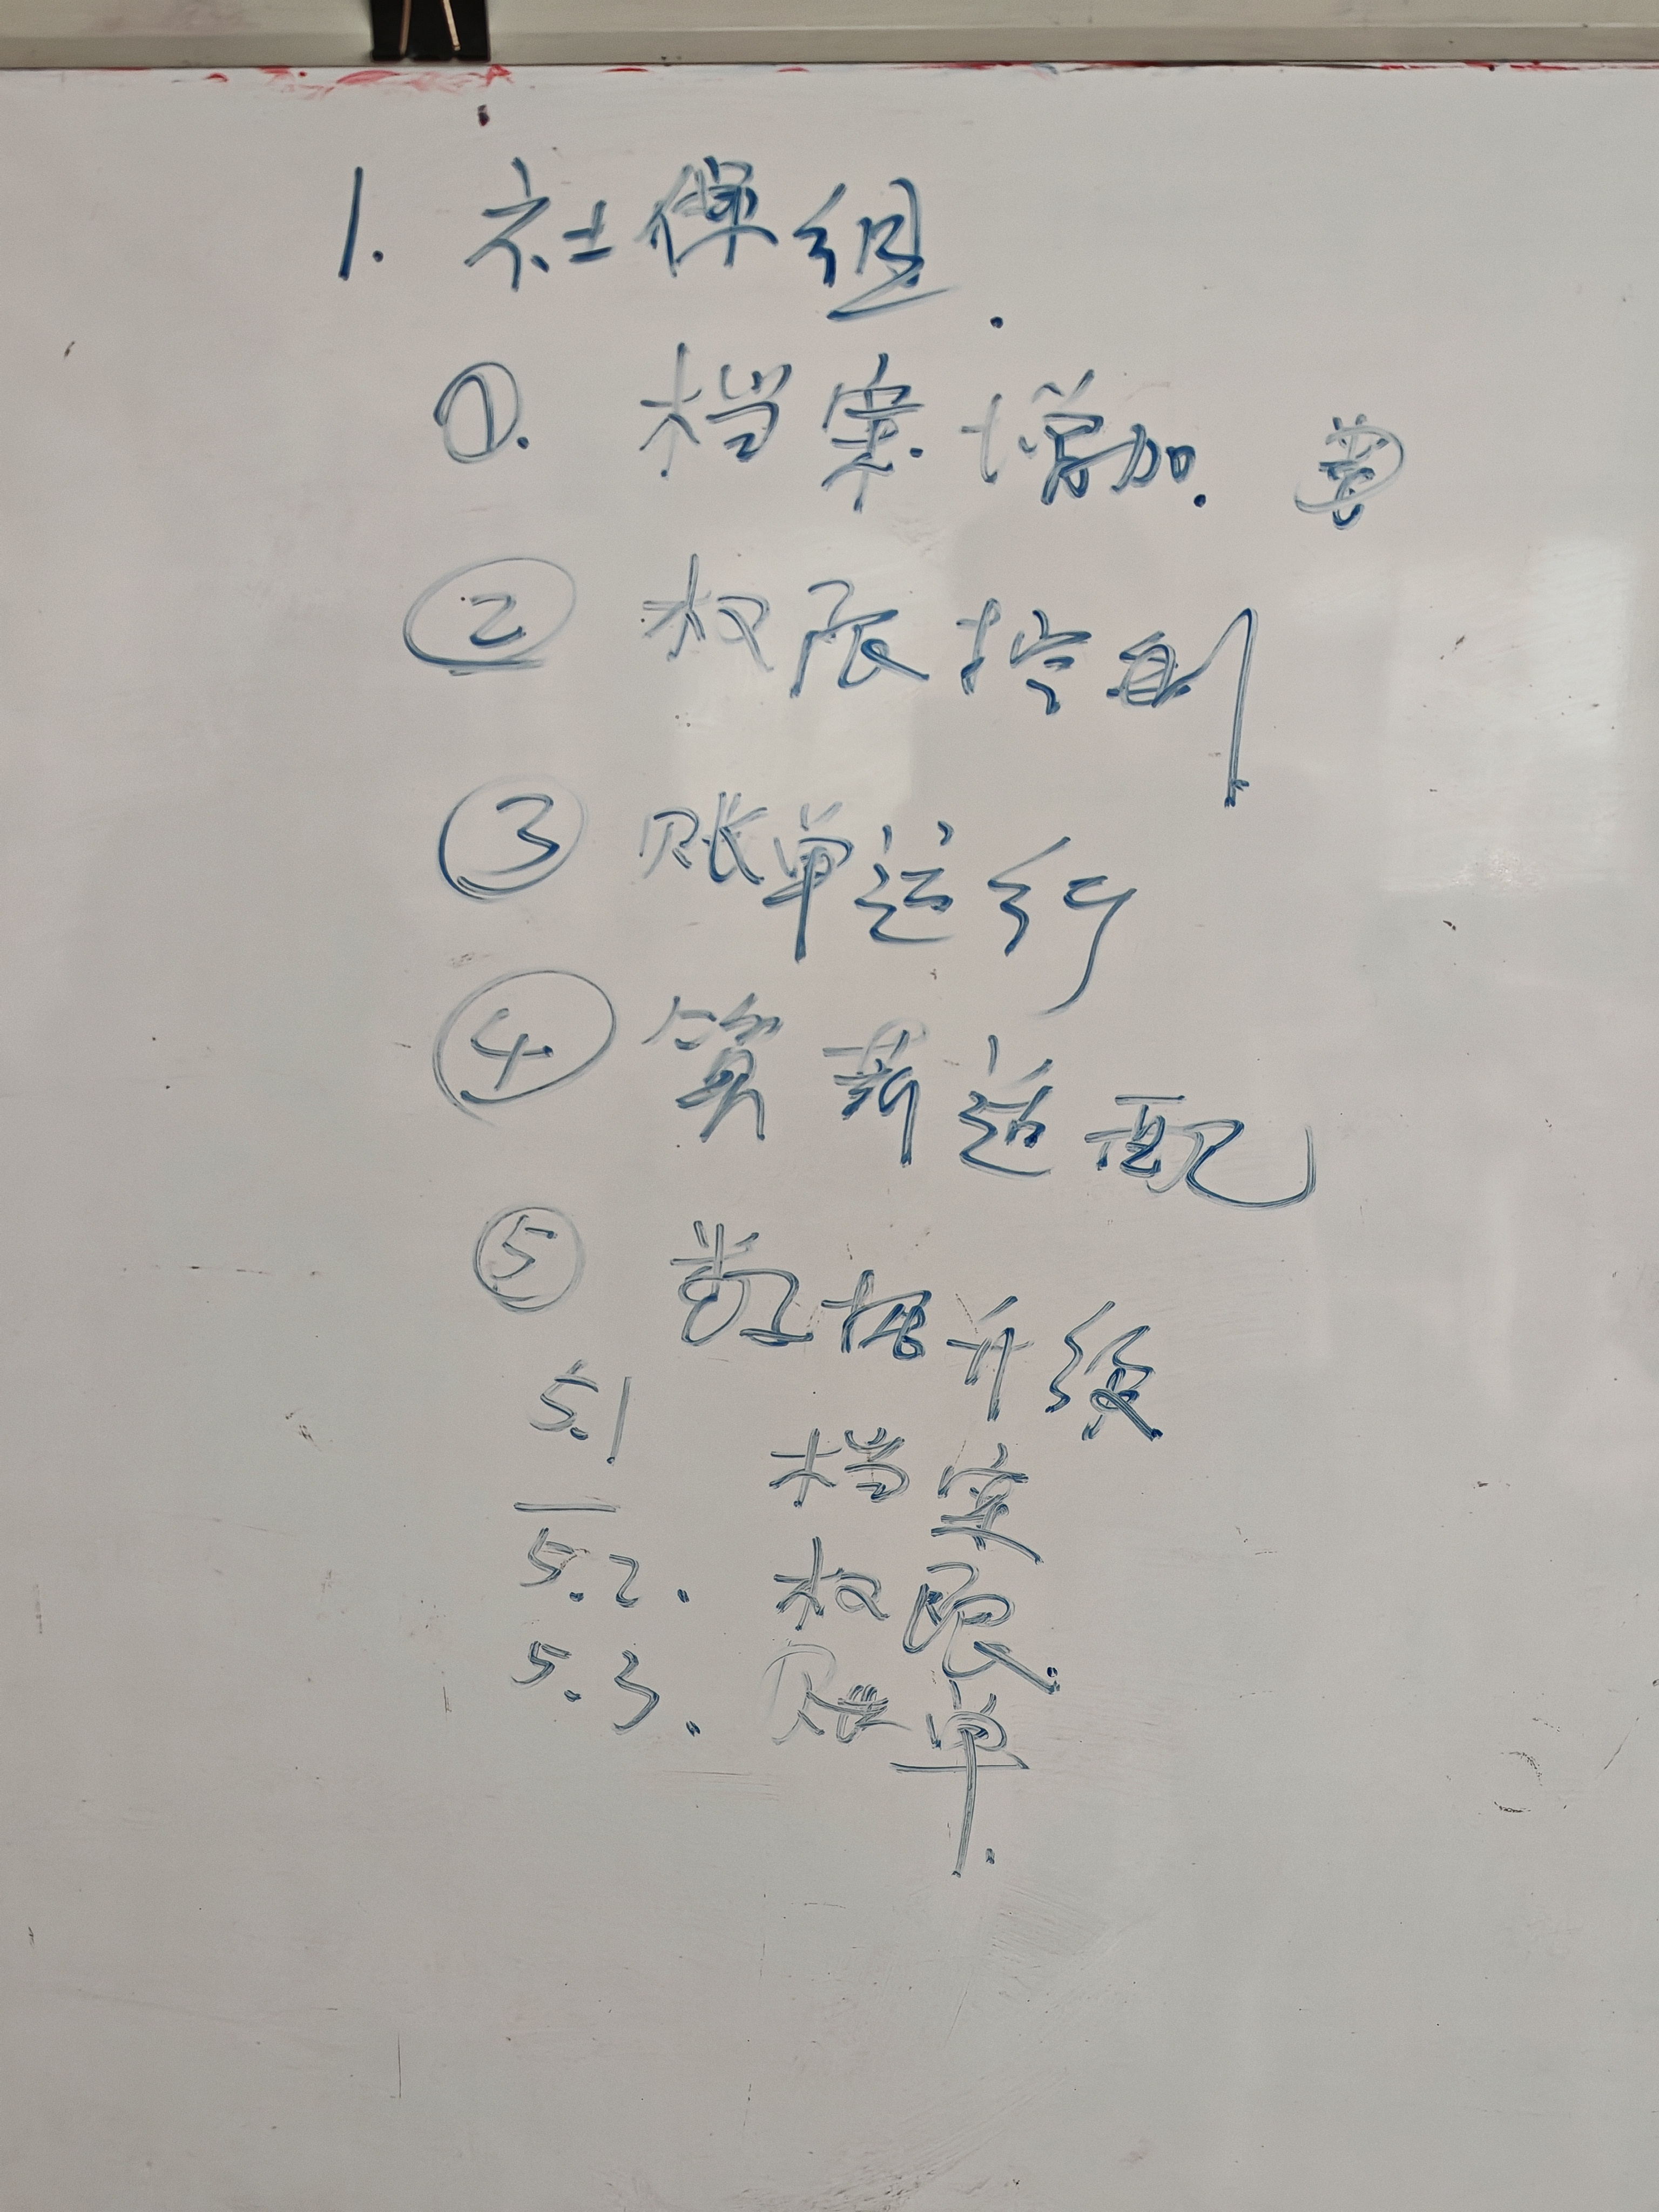 1. 社保组.
①. 档案增加.
② 权限控制
③ 账单运行
④ 算薪适配
⑤ 数据升级
5.1 档案
5.2. 权限.
5.3. 账单.